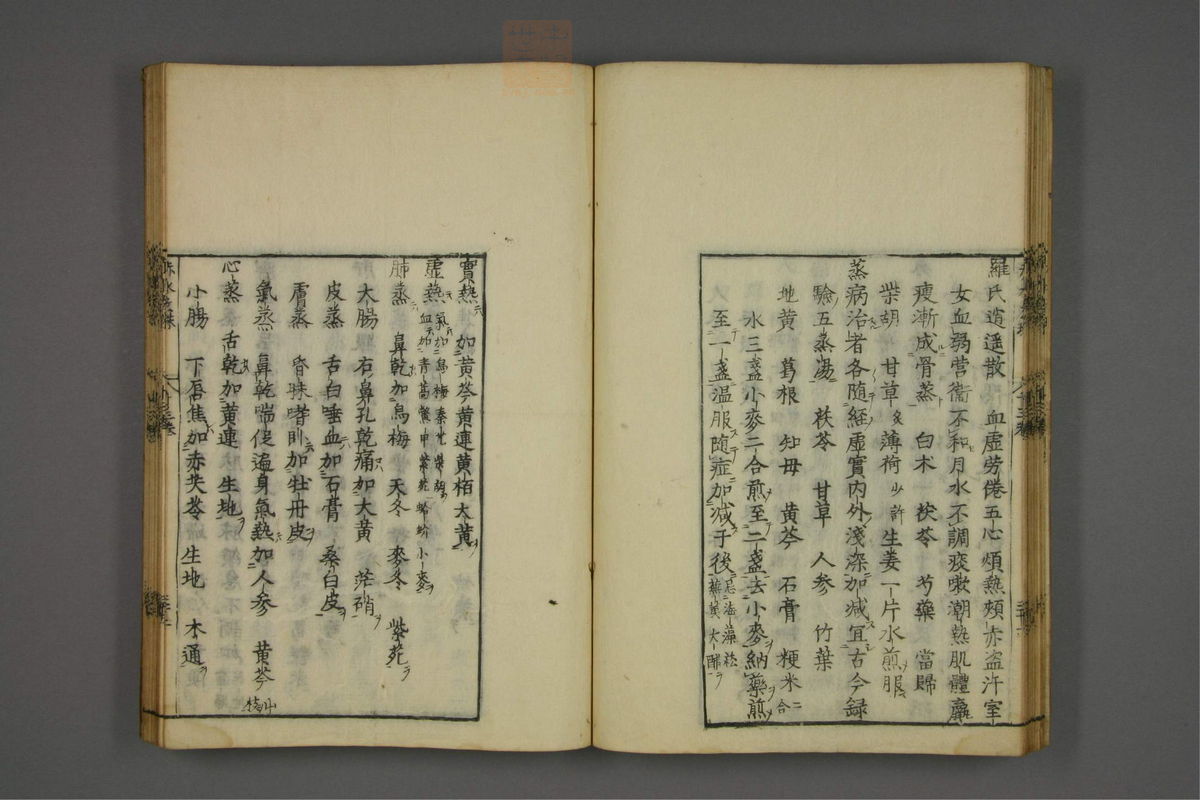 羅氏逍遥散　血虛労倦五心煩熱頰赤盗汗室
女血弱营衞不和月水不調痰嗽潮熱肌體羸
瘦漸成骨蒸　白术　茯苓　芍藥　當歸
柴胡　甘草炙　薄荷少許　生姜一片水煎服
蒸病治者各随経虛實内外淺深加减宜古今録
驗五蒸湯　茯苓　甘草　人参　竹葉
地黄　葛根　知母　黄芩　石膏　粳米二合
水三盞小麥二合煎至二盞去小麥納藥煎
至一盞温服随症加减于後忌海藻菘蕪荑大醋ヲ
實熱ニハ加黄芩黄連黄栢大黄ヲ
虛熱ニハ氣ニハ加烏梅秦艽柴胡血ニハ加青蒿鱉甲紫菀蛤蚧小麥ヲ
肺蒸　鼻乾加烏梅　天冬　麥冬　紫菀ヲ
大腸　右鼻孔乾痛加大黄　芒硝ヲ
皮蒸　舌白唾血加石膏　桑白皮ヲ
膚蒸　昏昧嗜卧加牡丹皮ヲ
氣蒸　鼻乾喘促遍身氣熱加人参　黄芩
心蒸　舌乾加黄連　生地ヲ
小腸　下唇焦加赤茯苓　生地　木通ヲ